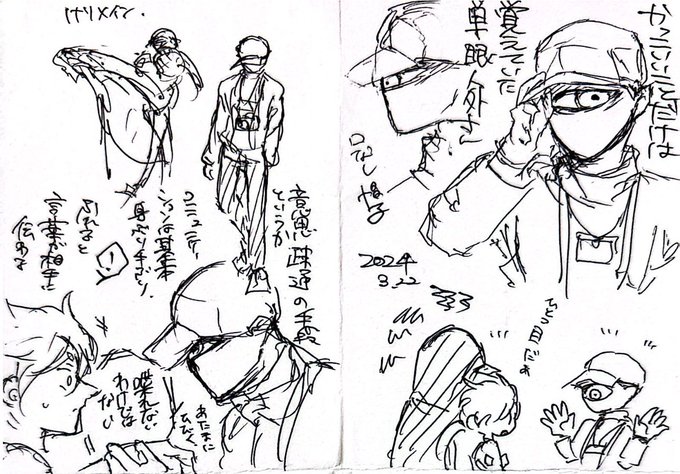 かっこいいことだけは
覚えていた
単眼人外さん
口なし 帽子
2024
3.22
ひとつ目だぁ
けりメイン.
意思疎通の手段
というか
コミュニケー
ションは基本
身ぶり手ぶり.
ふれると
言葉が相手に
伝わる
!
喋れない
わけでは
ない
あたまに
ひびく